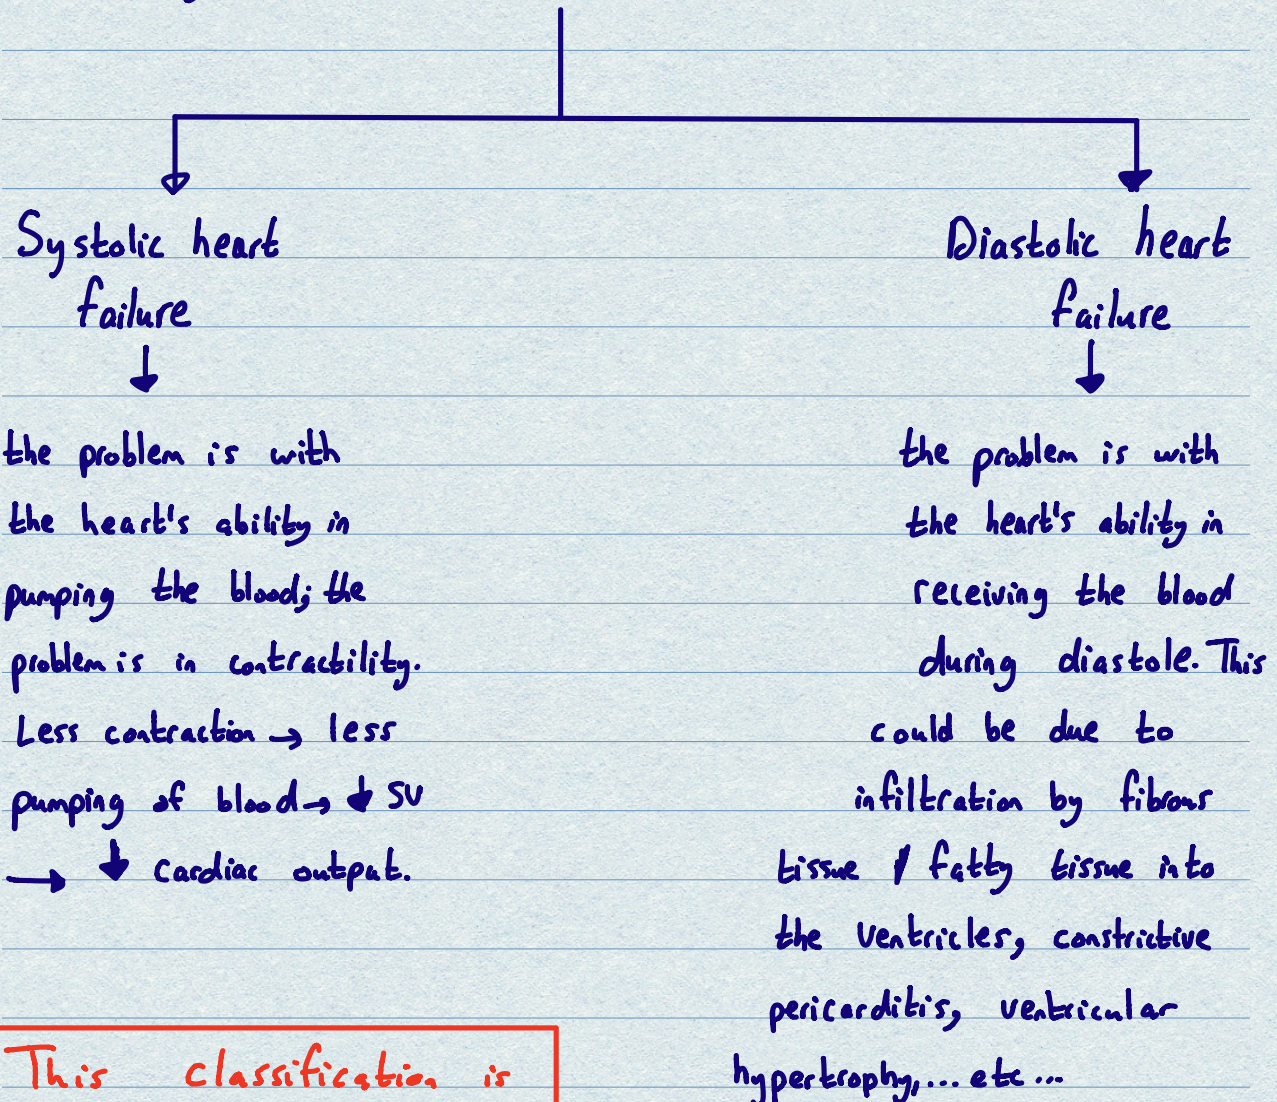 Systolic heart
failure
↓
the problem is with
the heart's ability in
pumping the blood; the
problem is in contractility.
Less contraction → less
pumping of blood → ↓ SV
→ ↓ cardiac output.
This classification is
Diastolic heart
failure
↓
the problem is with
the heart's ability in
receiving the blood
during diastole. This
could be due to
infiltration by fibrous
tissue / fatty tissue into
the ventricles, constrictive
pericarditis, ventricular
hypertrophy,... etc...